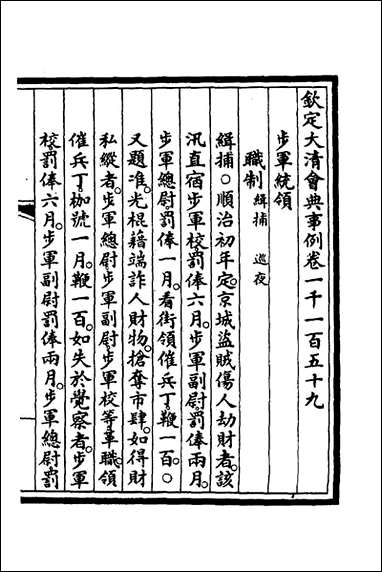 欽定大清會典事例卷一千一百五十九
步軍統領
職制緝捕 巡夜
緝捕○順治初年定。京城盜賊傷人劫財者。該
汛直宿步軍校罰俸六月。步軍副尉罰俸兩月。
步軍總尉罰俸一月。看街領催兵丁鞭一百。○
又題准。光棍藉端詐人財物。搶奪市肆。如得財
私縱者。步軍總尉步軍副尉步軍校等革職。領
催兵丁枷號一月。鞭一百。如失於覺察者。步軍
校罰俸六月。步軍副尉罰俸兩月。步軍總尉罰